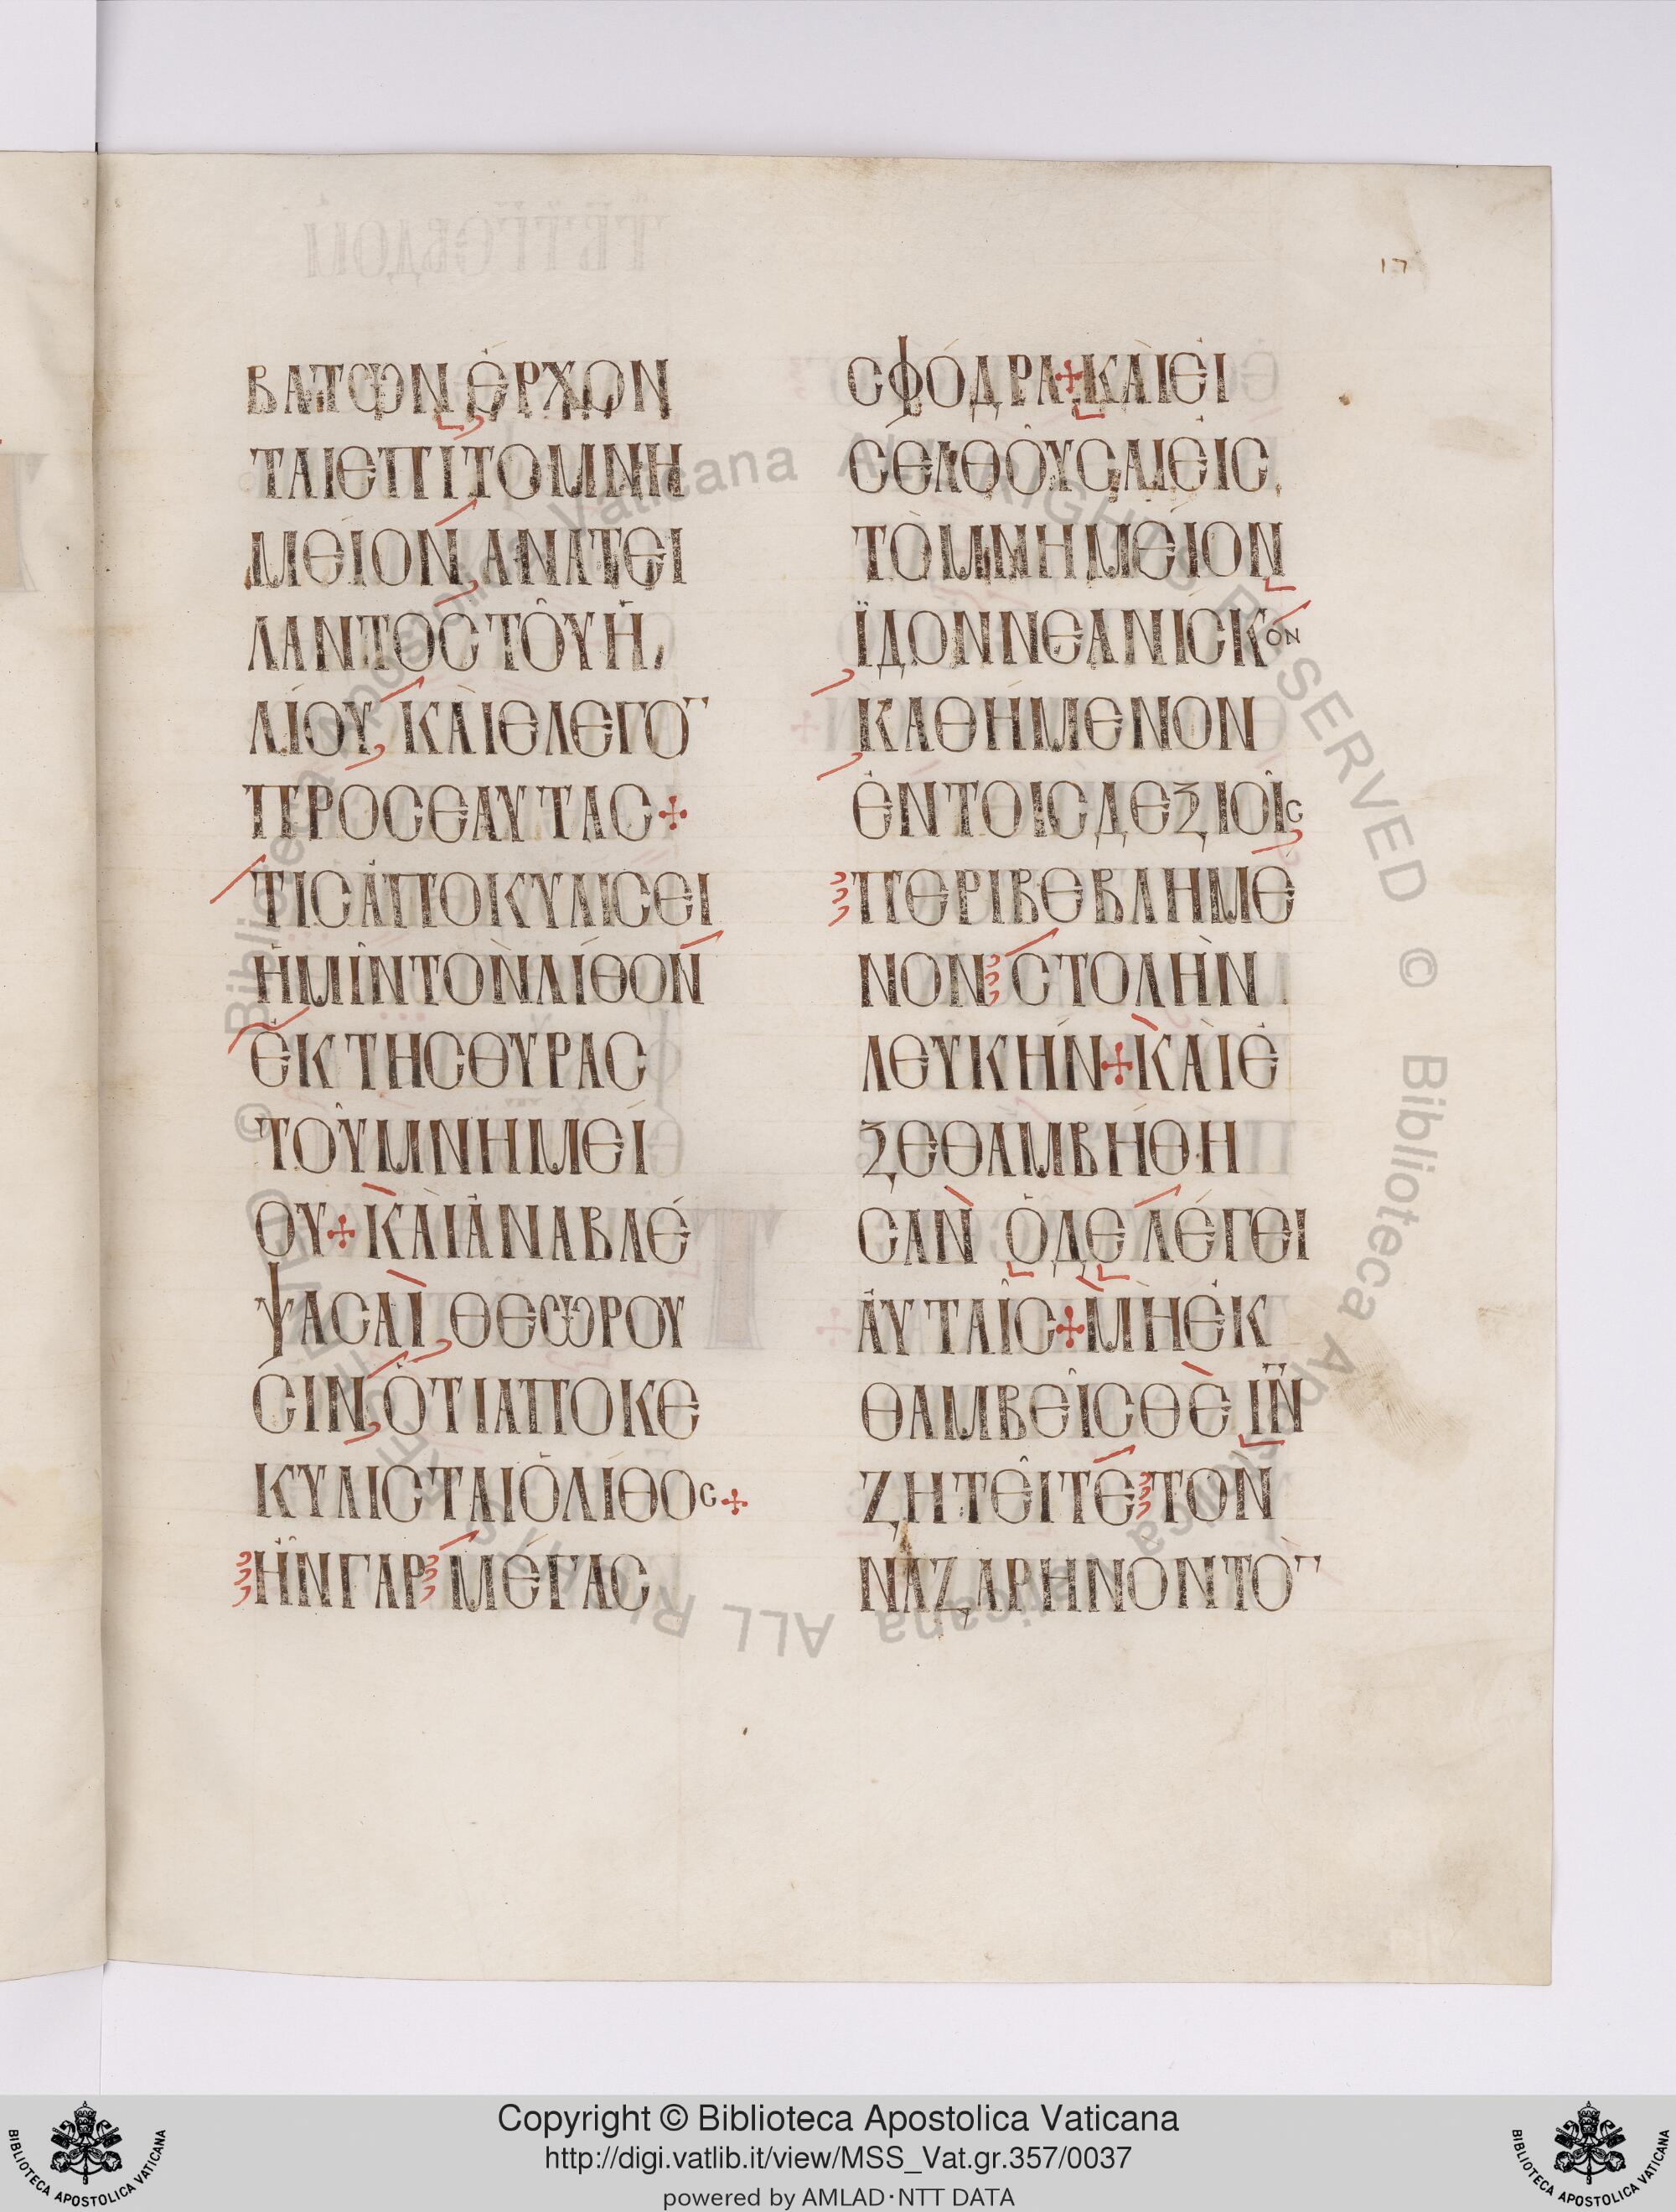 17
ΒΑΤΩΝ ἘΡΧΟΝ
ΤΑΙ ΕΠΙ ΤΟ ΜΝΗ
ΜΕΙΟΝ, ΑΝΑΤΕΙ
ΛΑΝΤΟC ΤΟΥ͂ Ἡ
ΛΊΟΥ, ΚΑῚ ΕΛΕΓΟ̅
ΠΡΟC ΕΑΥΤΑC✢
ΤΙC ἈΠΟΚΥΛΙCΕΙ
ἩΜΙ͂Ν ΤΟῊΝ ΛΊΘΟΝ
ἘΚ ΤΗC ΘΥΡΑC
ΤΟΥ͂ ΜΝΗΜΕΊ
ΟΥ✢ ΚΑῚ ἈΝΑΒΛΈ
ΨΑCΑΙ, ΘΕΩΡΟΥ
CΙΝ, ὍΤΙ ΑΠΟΚΕ
ΚΥΛΙCΤΑΙ Ὁ ΛΊΘΟC✢
ἮΝ ΓΑΡ ΜΈΓΑC
CΦΌΔΡΑ✢ ΚΑῚ ΕἸ
CΕΛΘΟΥ͂CΑΙ ΕἸC
ΤῸ ΜΝΗΜΕΊΟΝ
ΪΔΟΝ ΝΕΑΝΙCΚΟΝ
ΚΑΘΉΜΕΝΟΝ
ἘΝ ΤΟΙC ΔΕΞΙΟΙ͂C
ΠΕΡΙΒΕΒΛΗΜΕ
ΝΟΝ CΤΟΛῊΝ
ΛΕΥΚΉΝ✢ ΚΑῚ Ἐ
ΞΕΘΑΜΒΉΘΗ
CΑΝ Ὁ ΔΕ ΛΈΓΕΙ
ἈΥΤΑΙ͂C✢ ΜῊ ἘΚ
ΘΑΜΒΕΙ͂CΘΕ ΙΝ̅
ΖΗΤΕΙ͂ΤΕ ΤΟΝ
ΝΑΖΑΡΗΝΟΝ ΤΟ̅
Copyright © Biblioteca Apostolica Vaticana
http://digi.vatlib.it/view/MSS_Vat.gr.357/0037
powered by AMLAD·NTT DATA
BIBLIOTECA APOSTOLICA VATICANA
BIBLIOTECA APOSTOLICA VATICANA